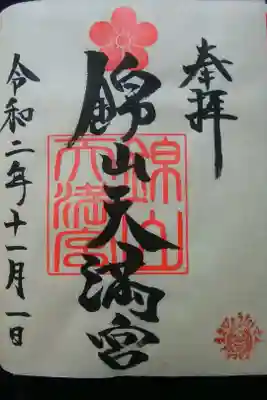 奉拝
錦山天満宮
錦山
天満宮
令和二年十一月一日